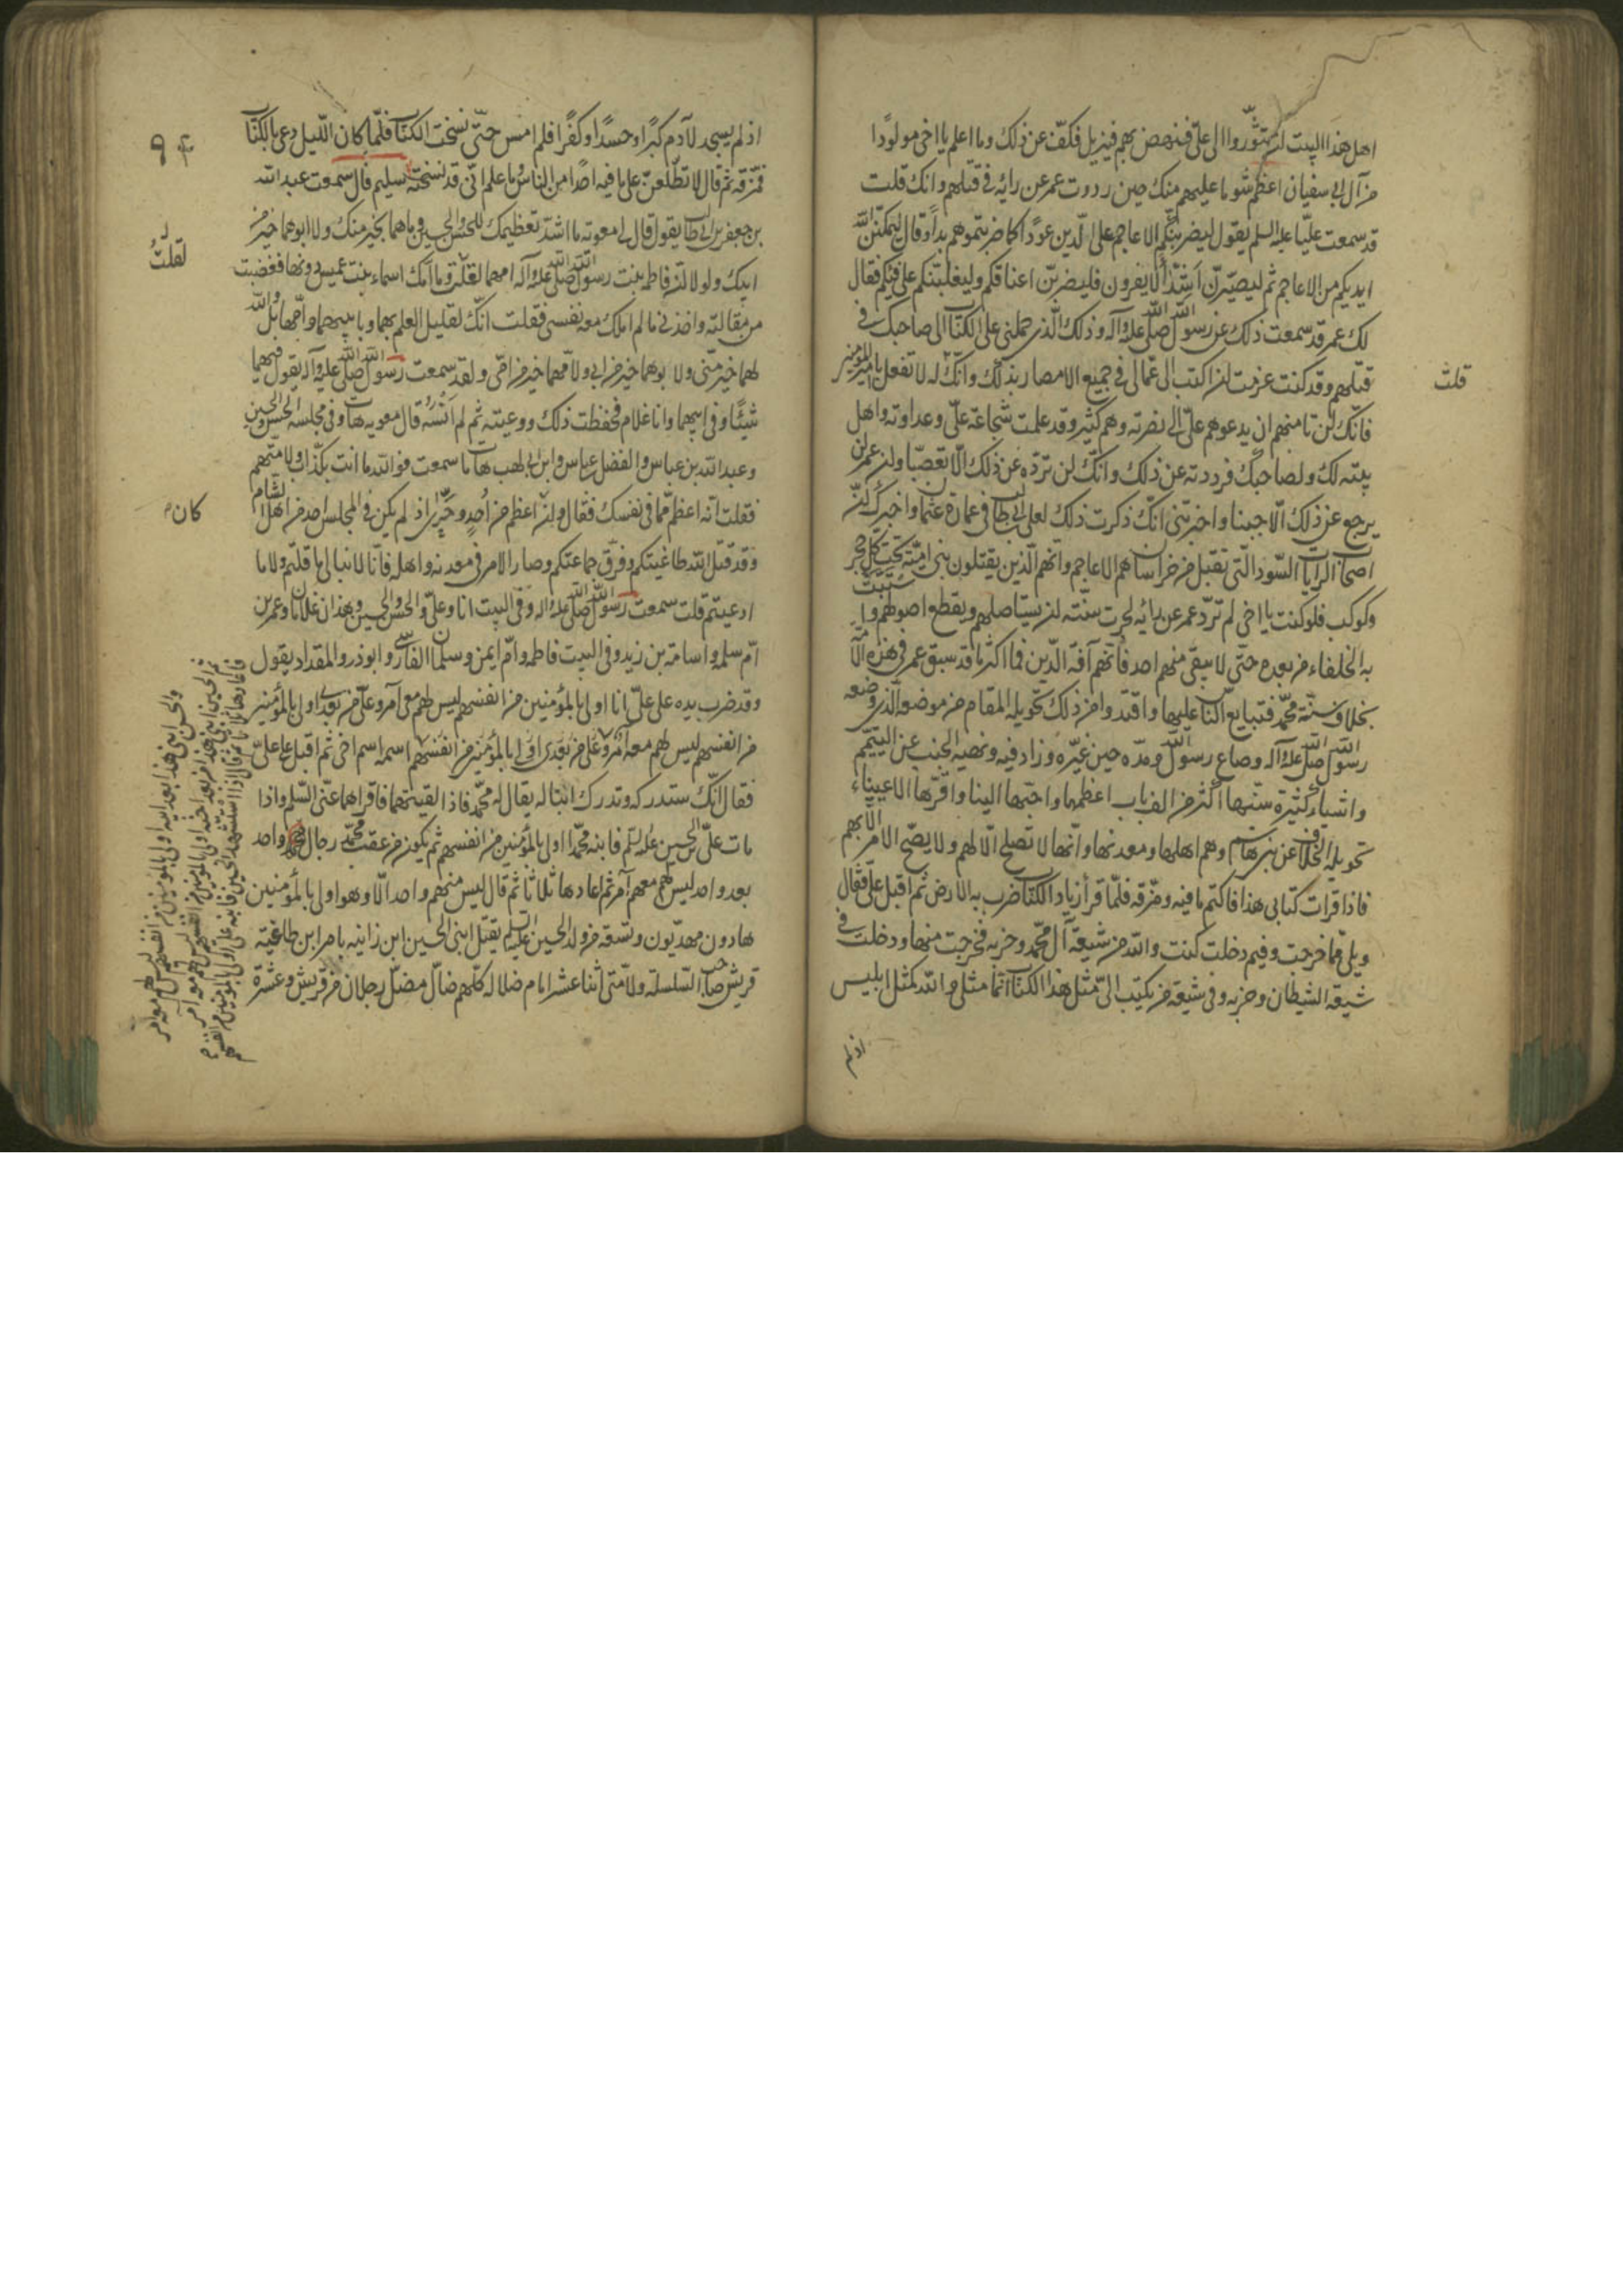 اهل هذا البيت ان يتثوروا الى علىّ فينهض بهم فيزيل فكفّ عن ذلك وما اعلم يا اخى مولودًا
من آل ابى سفيان اعظم شوما عليهم منك حين رددت عمر عن رايه فى قتلهم وانك قلت
قد سمعت عليّا عليه السلم يقول ليضربنّكم الاعاجم على الدين عودًا كما ضربتموهم بدأ وقال ليملئنّ الله
ايديكم من الاعاجم ثم ليصيّرنّ اُسُدًا لا يفرون فليضربنّ اعناقكم وليغلبنكم على فيئكم فقال
لك عمر قد سمعت ذلك عن رسول الله صلى الله عليه وآله وذلك الّذى حملنى على الكتاب الى صاحبك فى
قتلهم وقد كنت عزمت ان اكتب الى عمّالى فى جميع الامصار بذلك وانّك قلت له لا تفعل يا امير المؤمنين
فانّك لن تامنهم ان يدعوهم علىّ الى نصرته وهم كثير وقد علمت شجاعة علىّ وعداوته واهل
بيته لك ولصاحبك فرددته عن ذلك وانّك لن تردّه عن ذلك الّا تعصّبا وان عمر لن
يرجع عن ذلك الّا جبنا واخبرتنى انّك ذكرت ذلك لعلى بن ابى طالب فى عمارة عثمان واخبرك انّ
اصحاب الرايات السّود الّتى تقبل من خراسان هم الاعاجم وانّهم الّذين يقتلون بنى اميّة تحت كلّ حجر
وكوكب فلو كنت يا اخى لم تردّ عمر عن رايه لجرت سنّته ان يستاصلهم ويقطع اصولهم واستنّت
به الخلفاء من بعده حتّى لا يبقى منهم احد فانّهم آفة الدّين فما اكثر ما قد سبق عمر فى هذه الامّة
بخلاف سنّة محمّد فتبايع الناس عليها واقتدوا من ذلك تحويله المقام من موضعه الّذى وضعه
رسول الله صلى الله عليه وآله وصاع رسول الله ومدّه حين غيّره وزاد فيه ونهيه الجنب عن التيمّم
واشياء كثيرة سنّها اكثر من الف باب اعظمها واحبّها الينا واقرّها لاعيننا
تحويله الخلافة عن بنى هاشم وهم اهلها ومعدنها وانّها لا تصلح الّا لهم ولا يصحّ الامر الّا بهم
فاذا قرات كتابى هذا فاكتم ما فيه ومزّقه فلمّا قرأ زياد الكتاب ضرب به الارض ثم اقبل علىّ فقال
ويلى ممّا خرجت وفيم دخلت كنت والله من شيعة آل محمّد وحزبه فخرجت منها ودخلت فى
شيعة الشيطان وحزبه وفى شيعة من يكتب الىّ مثل هذا الكتاب انّما مثلى والله كمثل ابليس
اذ لم
قلت
اذ لم يسجد لآدم كبرًا وحسدًا وكفرًا فلم امس حتّى نسخت الكتاب فلمّا كان اللّيل دعى بالكتاب
فمزّقه ثم قال لا تطّلعنّ على ما فيه احدًا من الناس وما علم انّى قد نسخته سليم قال سمعت عبد الله
بن جعفر بن ابى طالب يقول قال لى معوية ما اشدّ تعظيمك للحسن والحسين وما هما بخير منك ولا ابوهما خير من
ابيك ولولا انّ فاطمه بنت رسول الله صلى الله عليه وآله امهما لقلت وما امّك اسماء بنت عميس دونها فغضبت
من مقالته واخذنى ما لم املك معه نفسى فقلت انّك لقليل العلم بهما وبابيهما وامّهما بل والله
لهما خير منّى ولابوهما خير من ابى ولامّهما خير من امّى ولقد سمعت رسول الله صلى الله عليه وآله يقول فيهما
شيئًا وفى ابيهما وانا غلام فحفظت ذلك ووعيته ثم لم اَنْسَهُ قال معويه هات وفى مجلسه الحسن والحسين
وعبد الله بن عباس والفضل بن عباس وابن ابى لهب هات ما سمعت فوالله ما انت بكذّاب ولا متّهم
فقلت انّه اعظم ممّا فى نفسك فقال وان كان اعظم من اُحد وحرىٰ اذ لم يكن فى المجلس احد من اهل الشام
وقد قتل الله طاغيتكم وفرّق جماعتكم وصار الامر فى معدنه واهله فانّا لا نبالى ما قلتم ولا ما
ادعيتم قلت سمعت رسول الله صلى الله عليه وآله وفى البيت انا وعلىّ والحسن والحسين وهذان غلامان وعمر بن
امّ سلمه واسامة بن زيد وفى البيت فاطمه وامّ ايمن وسلمان الفارسى وابوذر والمقداد يقول
وقد ضرب يده على علىّ انا اولى بالمؤمنين من انفسهم ليس لهم معى آمر وعلىّ من بعدى اولى بالمؤمنين
من انفسهم ليس لهم معه امر
فقال انّك ستدركه وتدرك ابنا له يقال له محمّد فاذا لقيتهما فاقراهما عنّى السّلم واذا
مات علىّ بن الحسين عليه السلم فابنه محمّد اولى بالمؤمنين من انفسهم ثم يكون من عقب محمّد رجال واحد
بعد واحد ليس لهم معهم آمر ثم اعادها ثلاثًا ثم قال ليس منهم واحد الّا وهو اولى بالمؤمنين
هادون مهديّون وتسعة من ولد الحسين عليه السلم يقتل ابنى الحسين ابن زانيه بامر ابن طاغية
قريش صاحب السّلسلة ولامّتى اثنا عشر امام ضلاله كلّهم ضالّ مضلّ رجلان من قريش وعشرة
٩٤
لقلتُ
كان